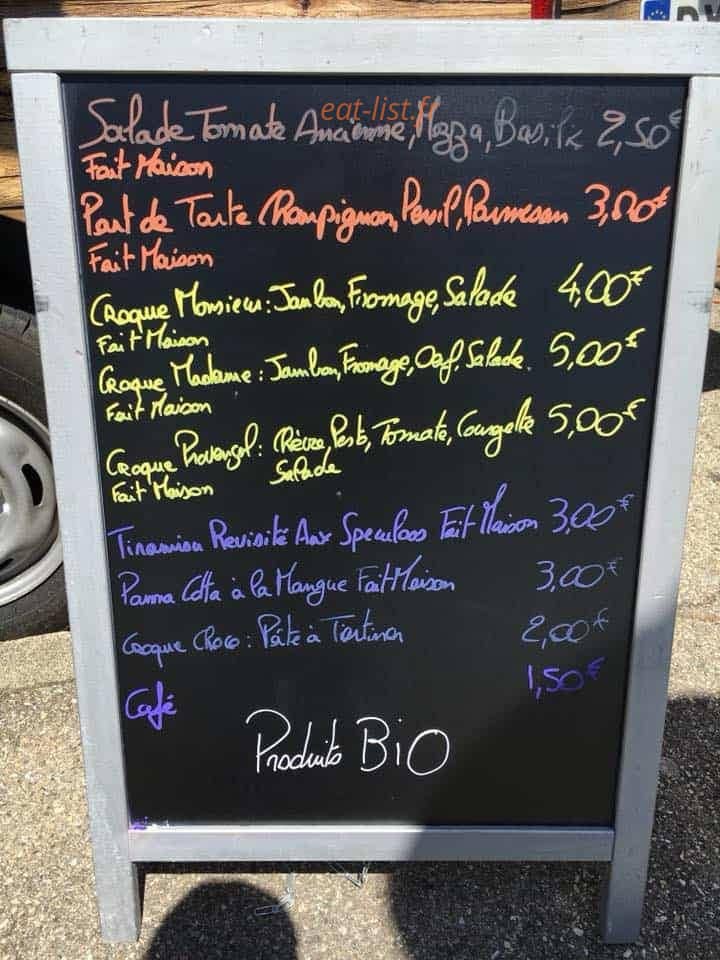 eat-list.fr
Salade Tomate Ancienne, Mozza, Basilic 2,50€
Fait Maison
Part de Tarte Champignon, Persil, Parmesan 3,00€
Fait Maison
Croque Monsieur: Jambon, Fromage, Salade 4,00€
Fait Maison
Croque Madame: Jambon, Fromage, Oeuf, Salade 5,00€
Fait Maison
Croque Provençal: Chèvre, Pesto, Tomate, Courgette 5,00€
Salade
Fait Maison
Tiramisu Revisité Aux Speculoos Fait Maison 3,00€
Panna Cotta à la Mangue Fait Maison 3,00€
Croque Choco: Pâte à Tartiner 2,00€
Café 1,50€
Produits BiO